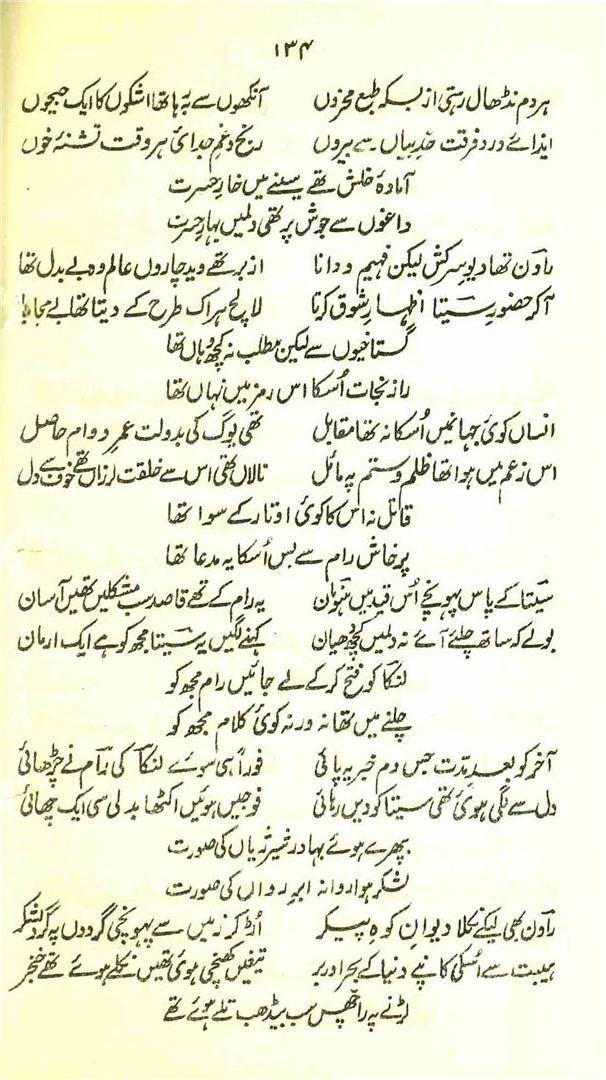 ۱۳۴
ہر دم نڈھال رہتی از بسکہ طبع محزوں آنکھوں سے بہ رہا تھا اشکوں کا ایک جیحوں
ایذائے درد فرقت حدِ بیاں سے بیروں رنج و غمِ جدائی ہر وقت تشنۂ خوں
آمادۂ خلش تھے سینے میں خارِ حسرت
داغوں سے جوش پر تھی دلمیں بہارِ حسرت
راون تھا دیو سرکش لیکن فہیم و دانا ازبر تھے وید چاروں عالم وہ بے بدل تھا
آکر حضور سیتا اظہارِ شوق کرتا لالچ ہر اک طرح کے دیتا تھا بے محابا
گستاخیوں سے لیکن مطلب نہ کچھ وہاں تھا
راز نجات اُسکا اس رمز میں نہاں تھا
انساں کوئی جہانمیں اُسکا نہ تھا مقابل تھی یوگ کی بدولت عمرِ دوام حاصل
اس زعم میں ہوا تھا ظلم و ستم پہ مائل نالاں تھی اس سے خلقت لرزاں تھے خوف سے دل
قاتل نہ اس کا کوئی اوتار کے سوا تھا
پرخاش رام سے بس اُسکا یہ مدعا تھا
سیتا کے پاس پہونچے اُس قید میں ہنومان یہ رام کے تھے قاصد سب مشکلیں تھیں آسان
بولے کہ ساتھ چلئے آئے نہ دلمیں کچھ دھیان کہنے لگیں یہ سیتا مجھ کو ہے ایک ارمان
لنکا کو فتح کرکے لے جائیں رام مجھ کو
چلنے میں تھا نہ ورنہ کوئی کلام مجھ کو
آخر کو بعدِ مدت جس دم خبر یہ پائی فوراً ہی سوئے لنکا کی رام نے چڑھائی
دل سے لگی ہوئی تھی سیتا کو دیں رہائی فوجیں ہوئیں اکٹھا بدلی سی ایک چھائی
بپھرے ہوئے بہادر شیرِ ژیاں کی صورت
لشکر ہوا روانہ ابرِ رواں کی صورت
راون بھی لیکے نکلا دیوانِ کوہ پیکر اُڑ کر زمیں سے پہونچی گردوں پہ گردِ لشکر
ہیبت سے اُسکی کانپے دنیا کے بحر اور بر تیغیں کھنچی ہوئی تھیں نکلے ہوئے تھے خنجر
لڑنے پہ راچھس سب بیڈھب تلے ہوئے تھے